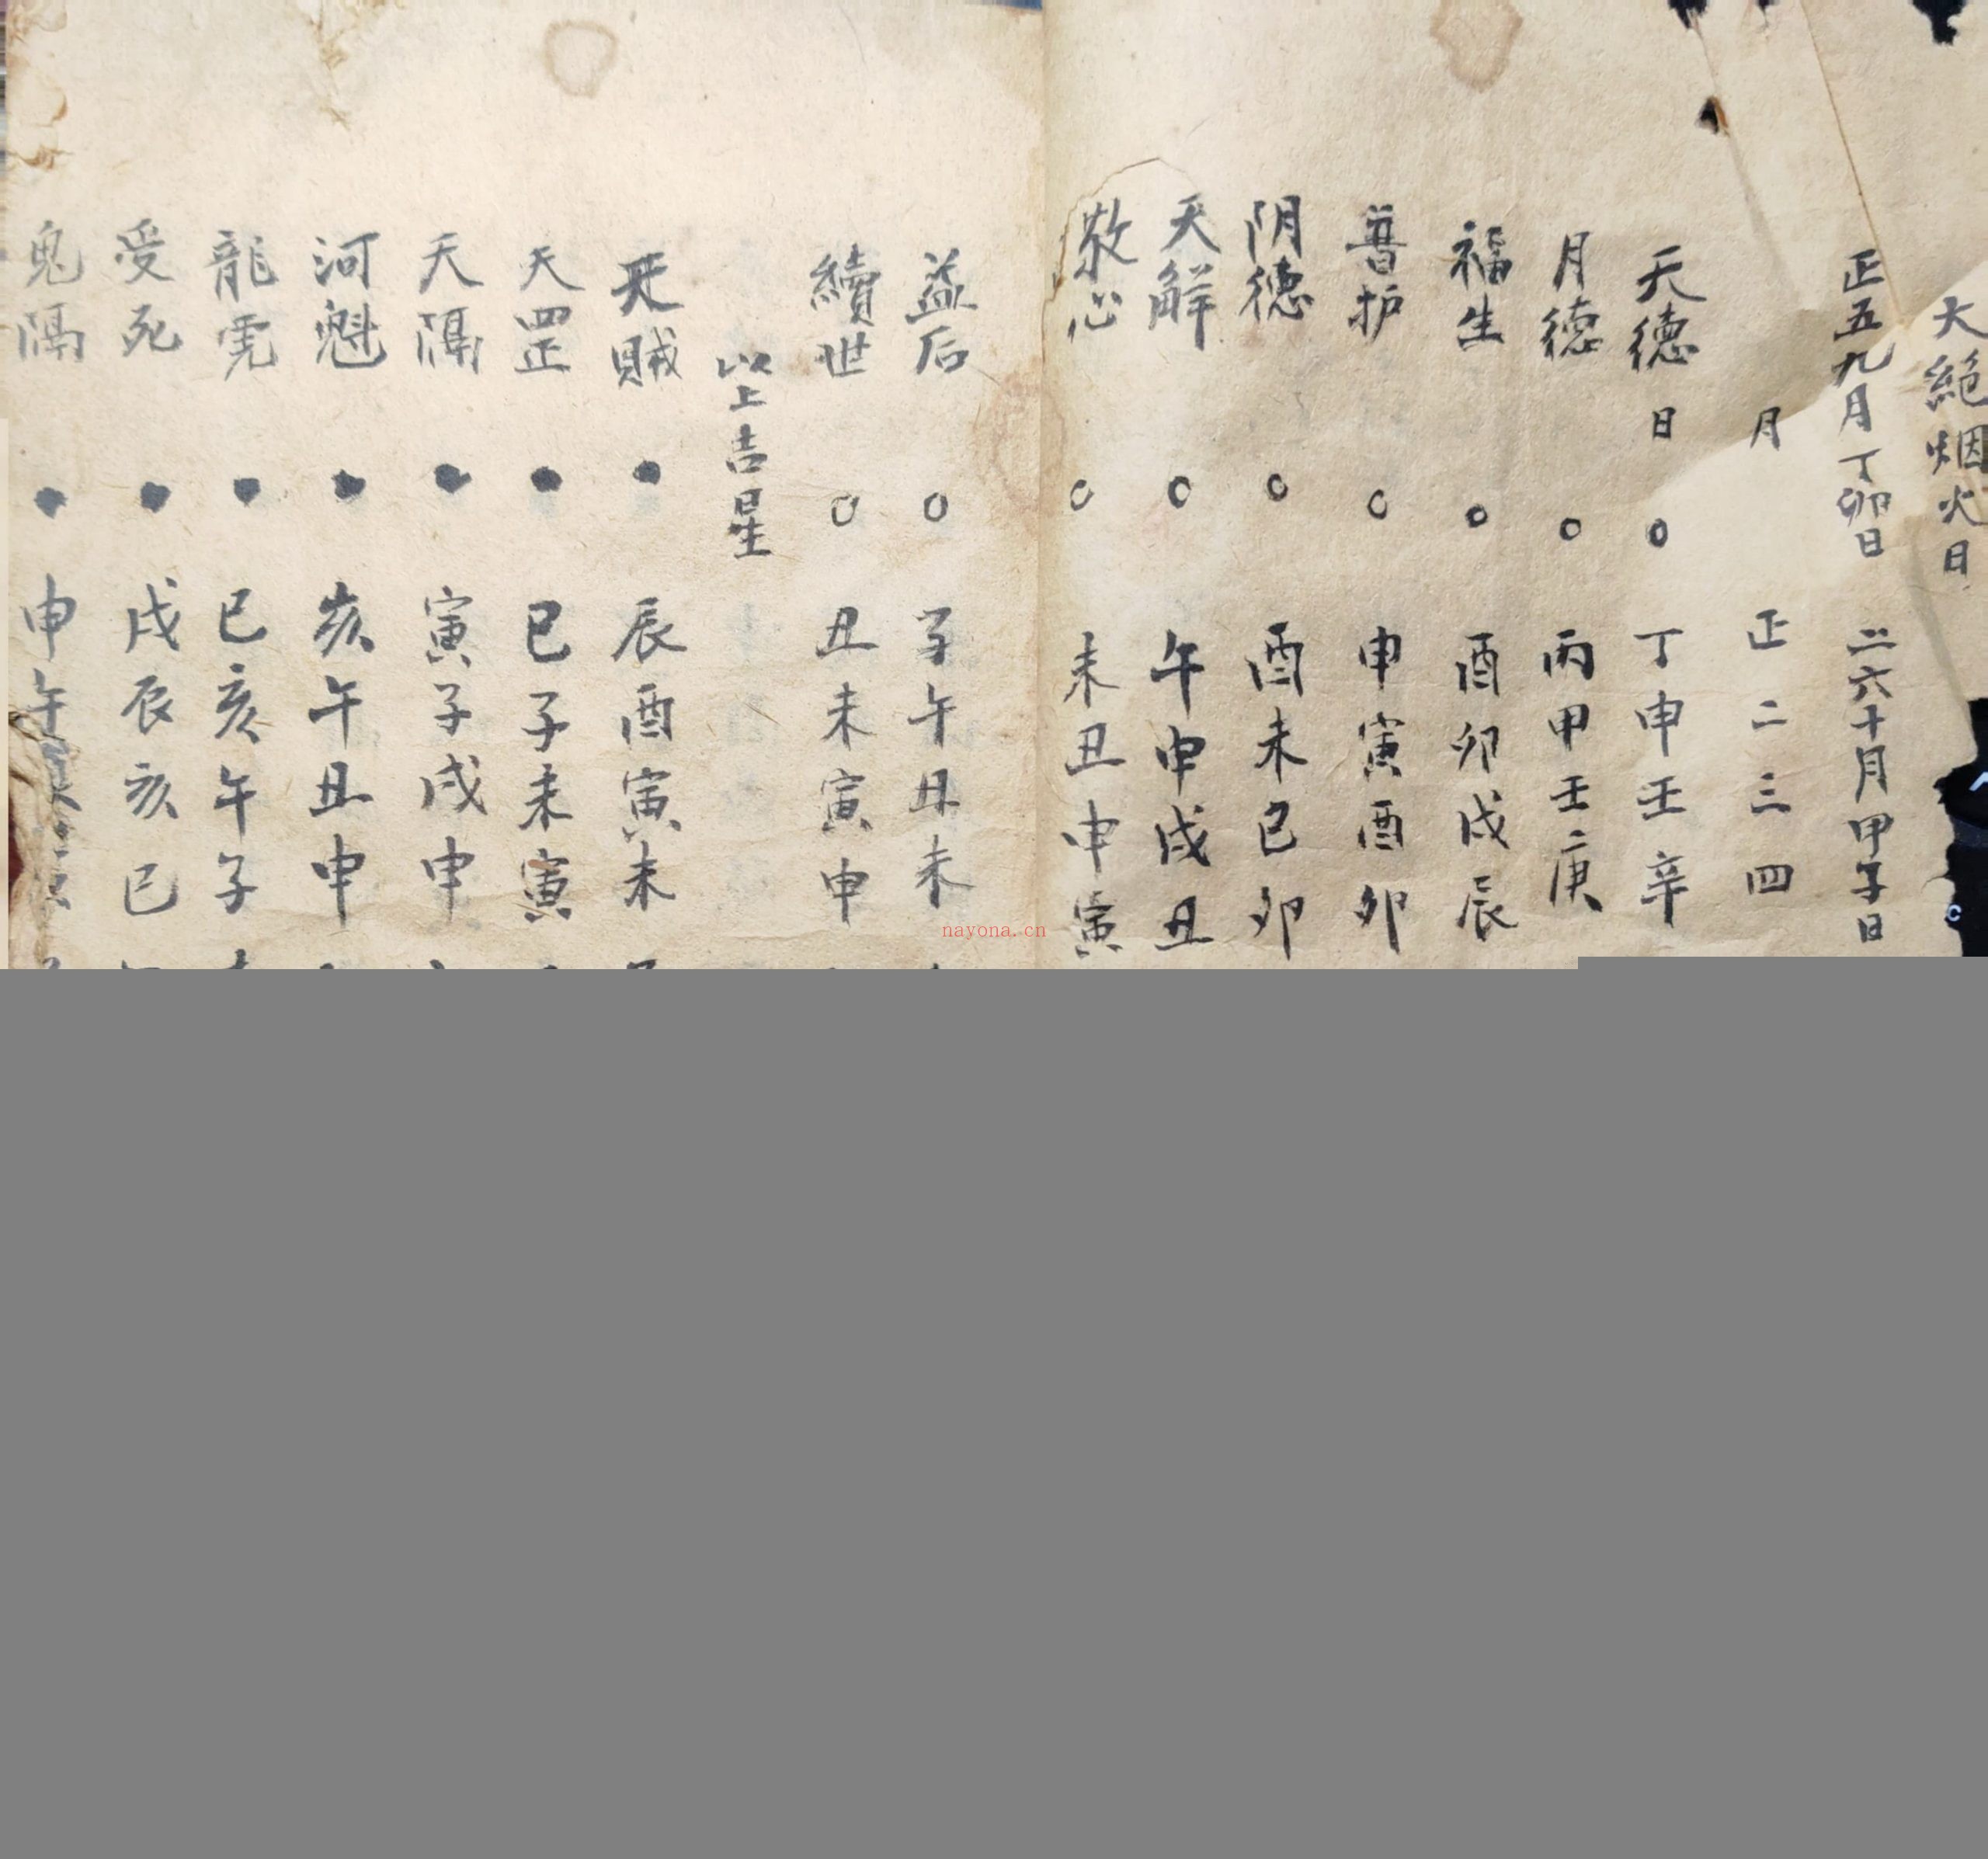 大絕烟火日
正五九月丁卯日 二六十月甲子日
月 正二三四
天德日 丁申壬辛
月德 丙甲壬庚
福生 酉卯戌辰
普护 申寅酉卯
阴德 酉未巳卯
天解 午申戌丑
敬心 未丑申寅
益后 子午丑未
續世 丑未寅申
以上吉星
天賊 辰酉寅未
天罡 巳子未寅
天隔 寅子戌申
河魁 亥午丑申
龍虎 巳亥午子
受死 戌辰亥巳
鬼隔 申午
nayona.cn